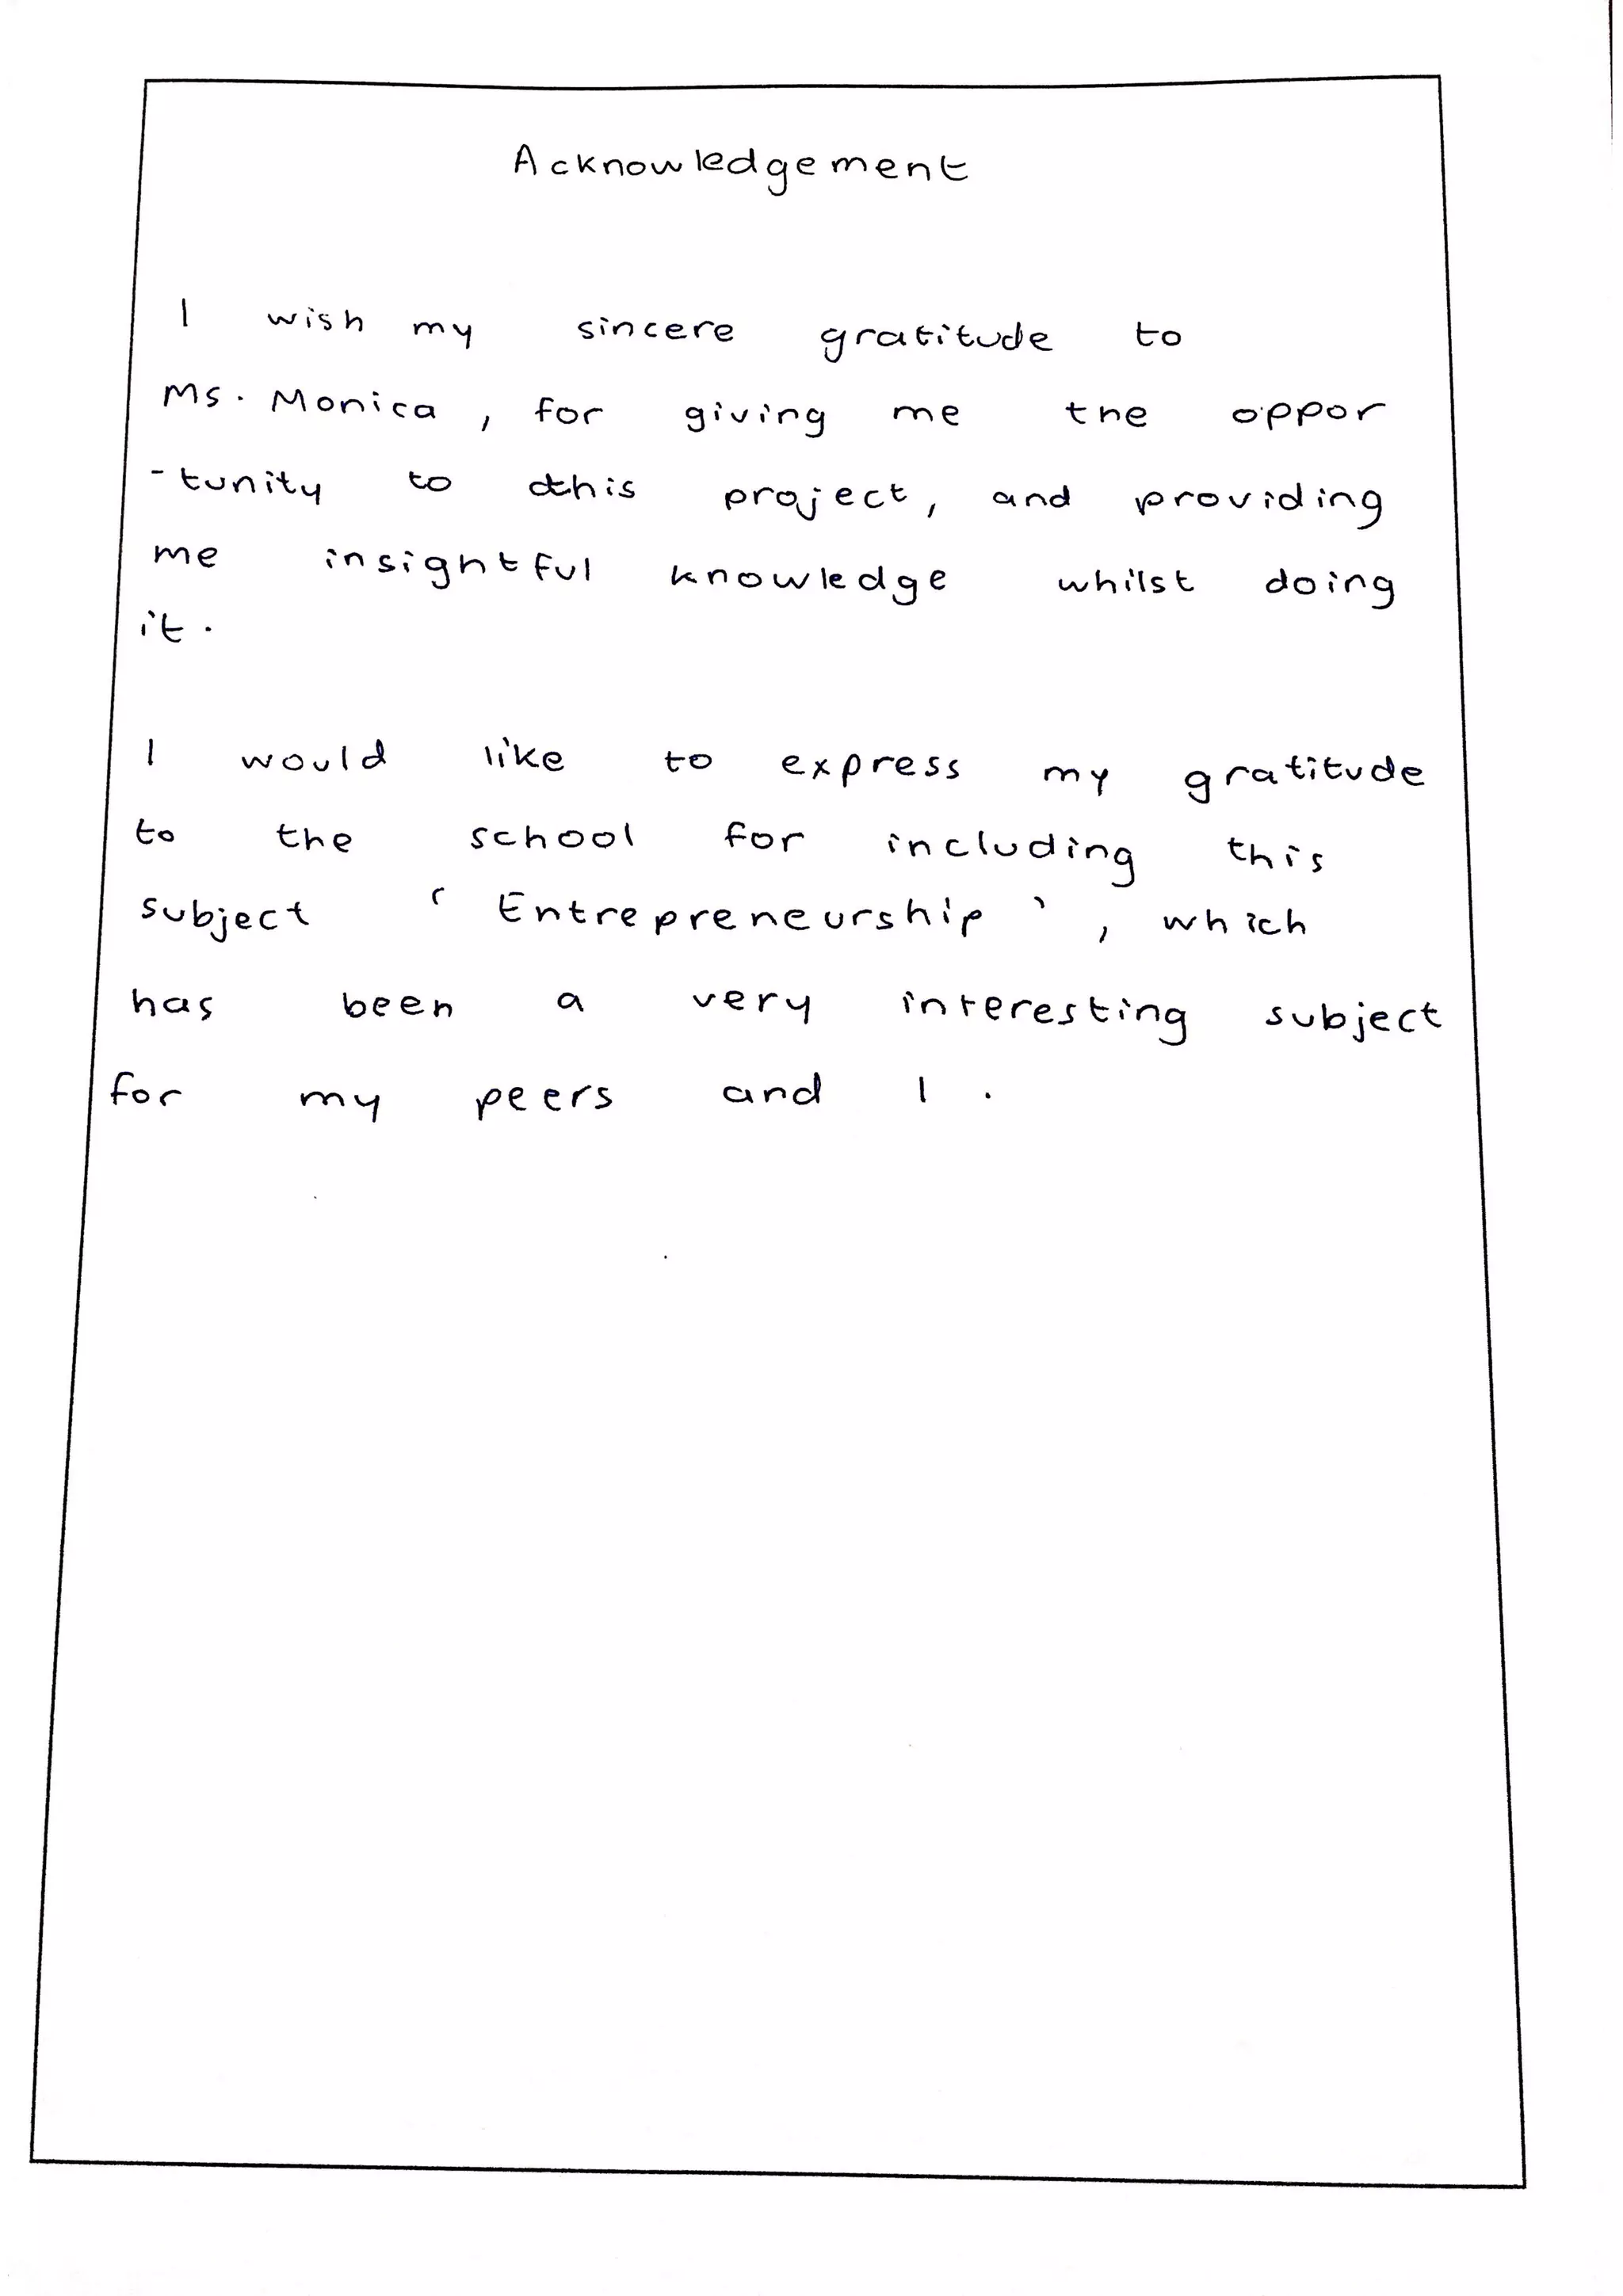 Acknowledgement
I wish my sincere gratitude to
Ms. Monica, for giving me the oppor
-tunity to this project, and providing
me insightful knowledge whilst doing
it.
I would like to express my gratitude
to the school for including this
subject ‘Entrepreneurship’, which
has been a very interesting subject
for my peers and I.